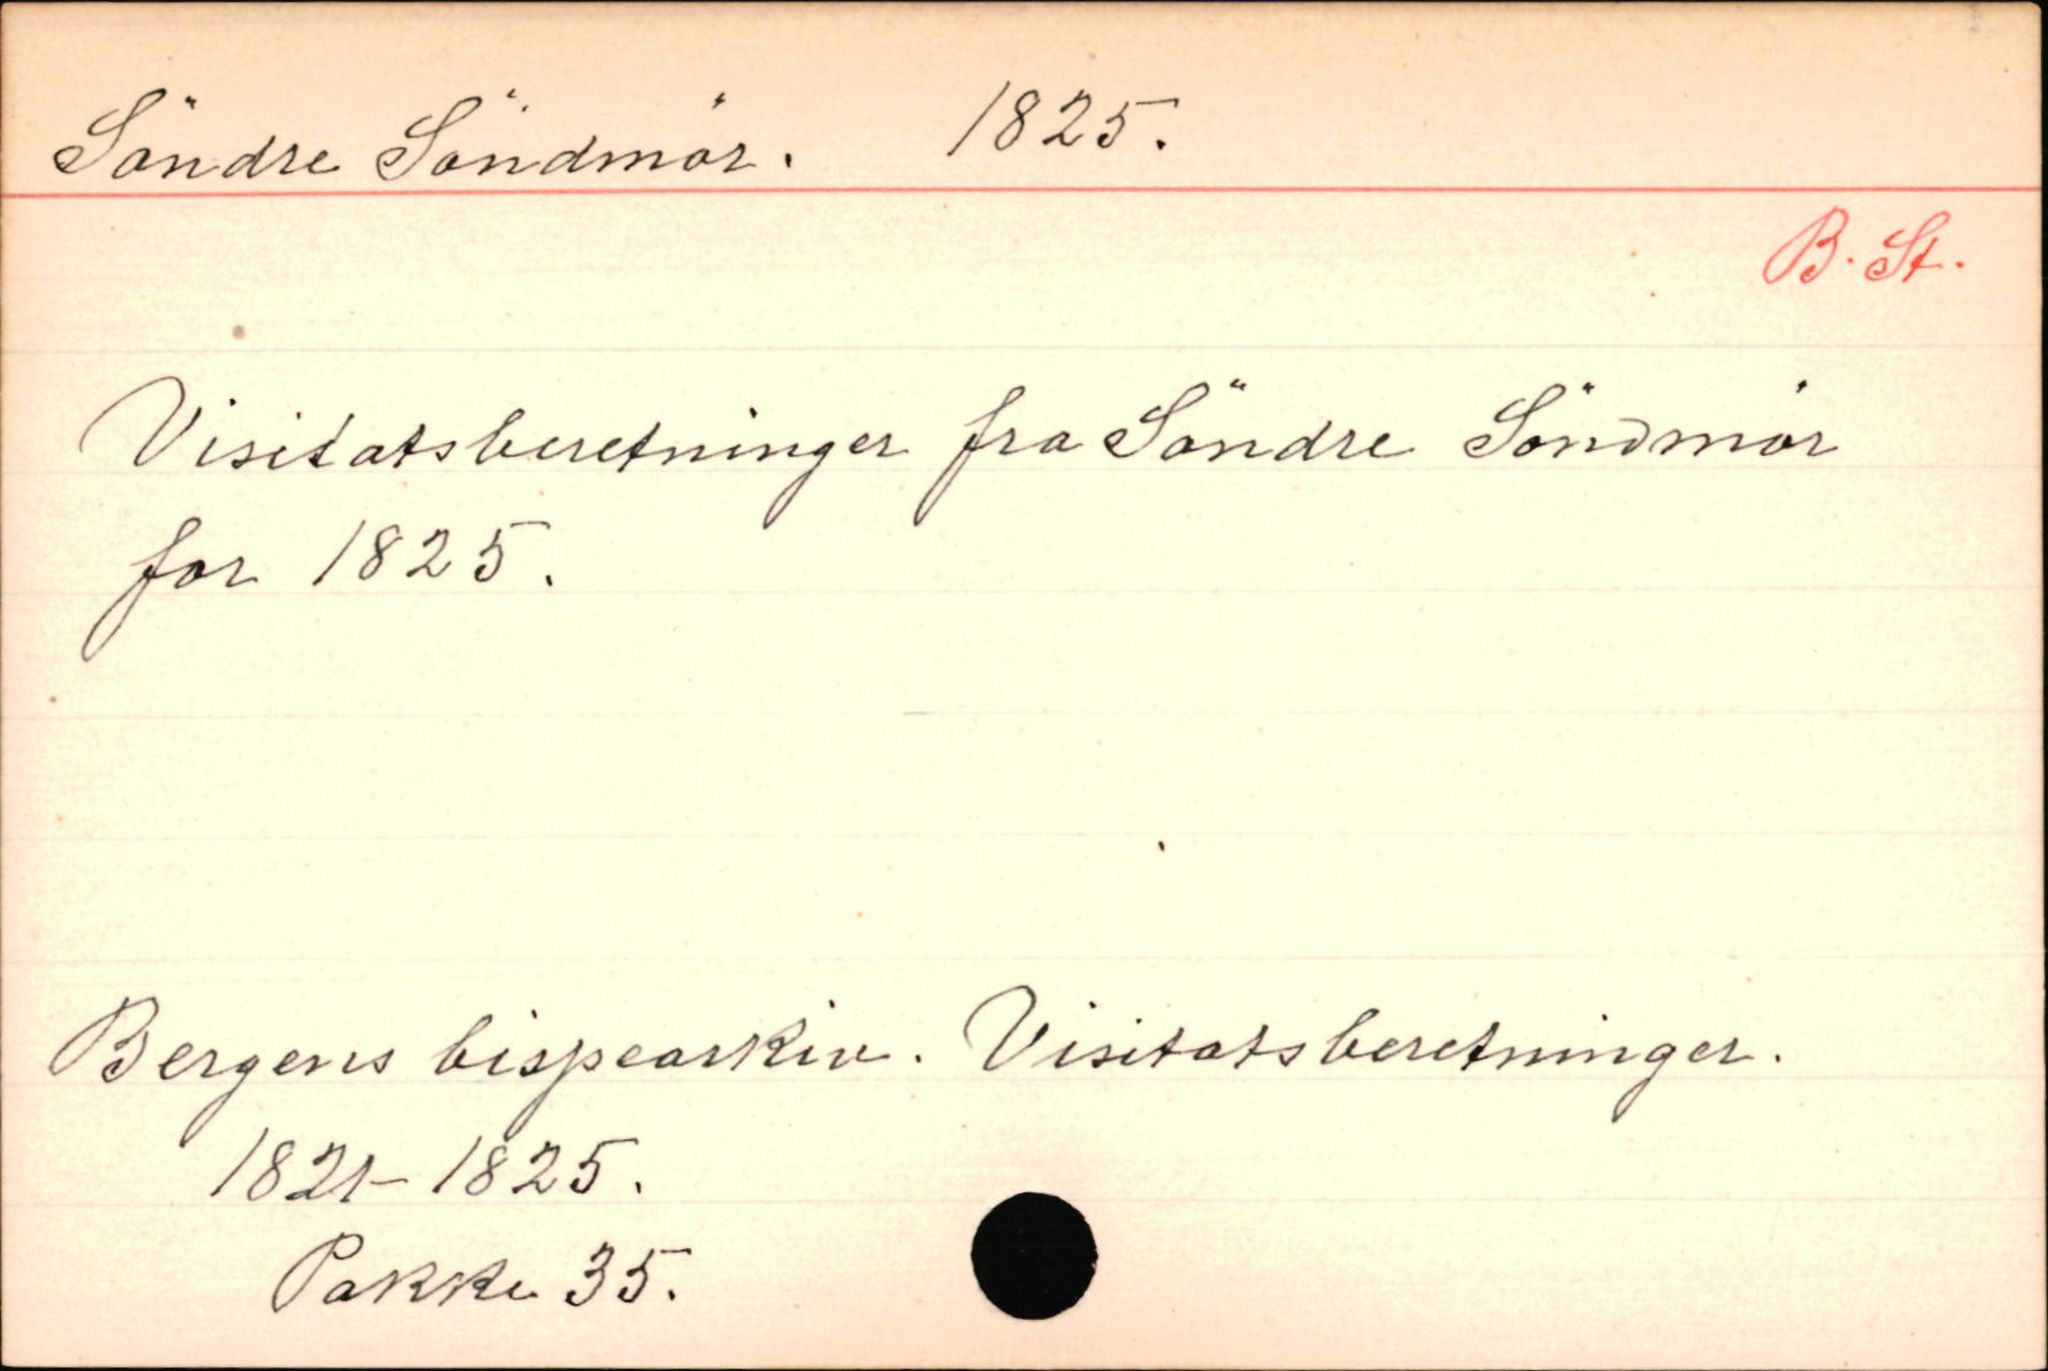 Söndre Söndmör. 1825.
B. St.
Visitatsberetninger fra Söndre Söndmör
for 1825.
Bergens bispearkiv. Visitatsberetninger.
1821-1825.
Pakke 35.